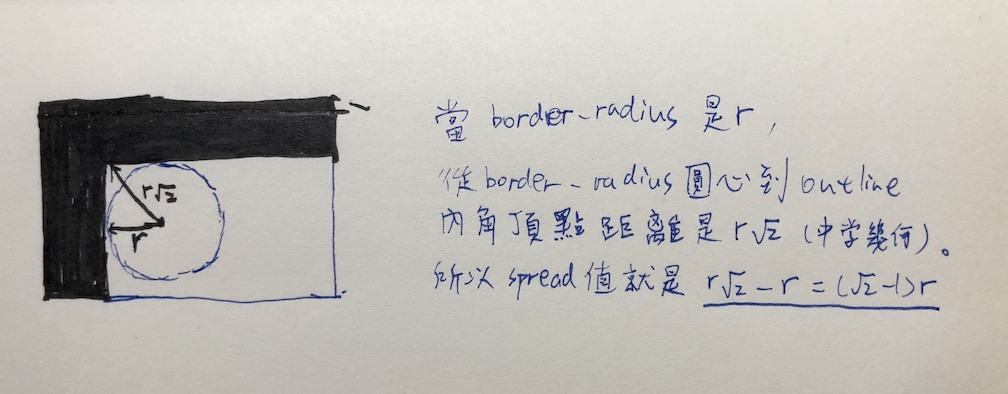 r√2
r
當 border-radius 是 r,
從 border-radius 圓心到 outline
內角頂點距離是 r√2 (中学幾何)。
所以 spread 值就是 r√2 - r = (√2-1)r